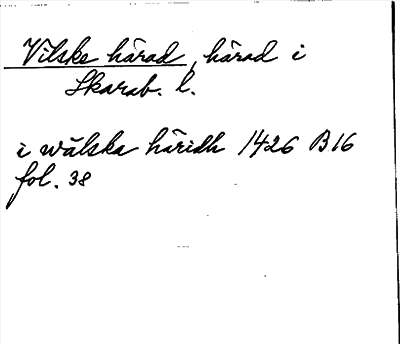 Vilske härad, härad i
Skarab. l.
i wälska häridh 1426 B16
fol. 38